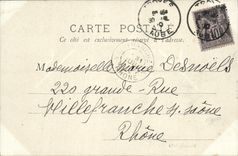 CARTE POSTALE
Ce côté est exclusivement réservé à l'adresse.
AUBE
Mademoiselle Marie Desnoëls
220 grande-Rue
Villefranche s/ Saône
Rhône